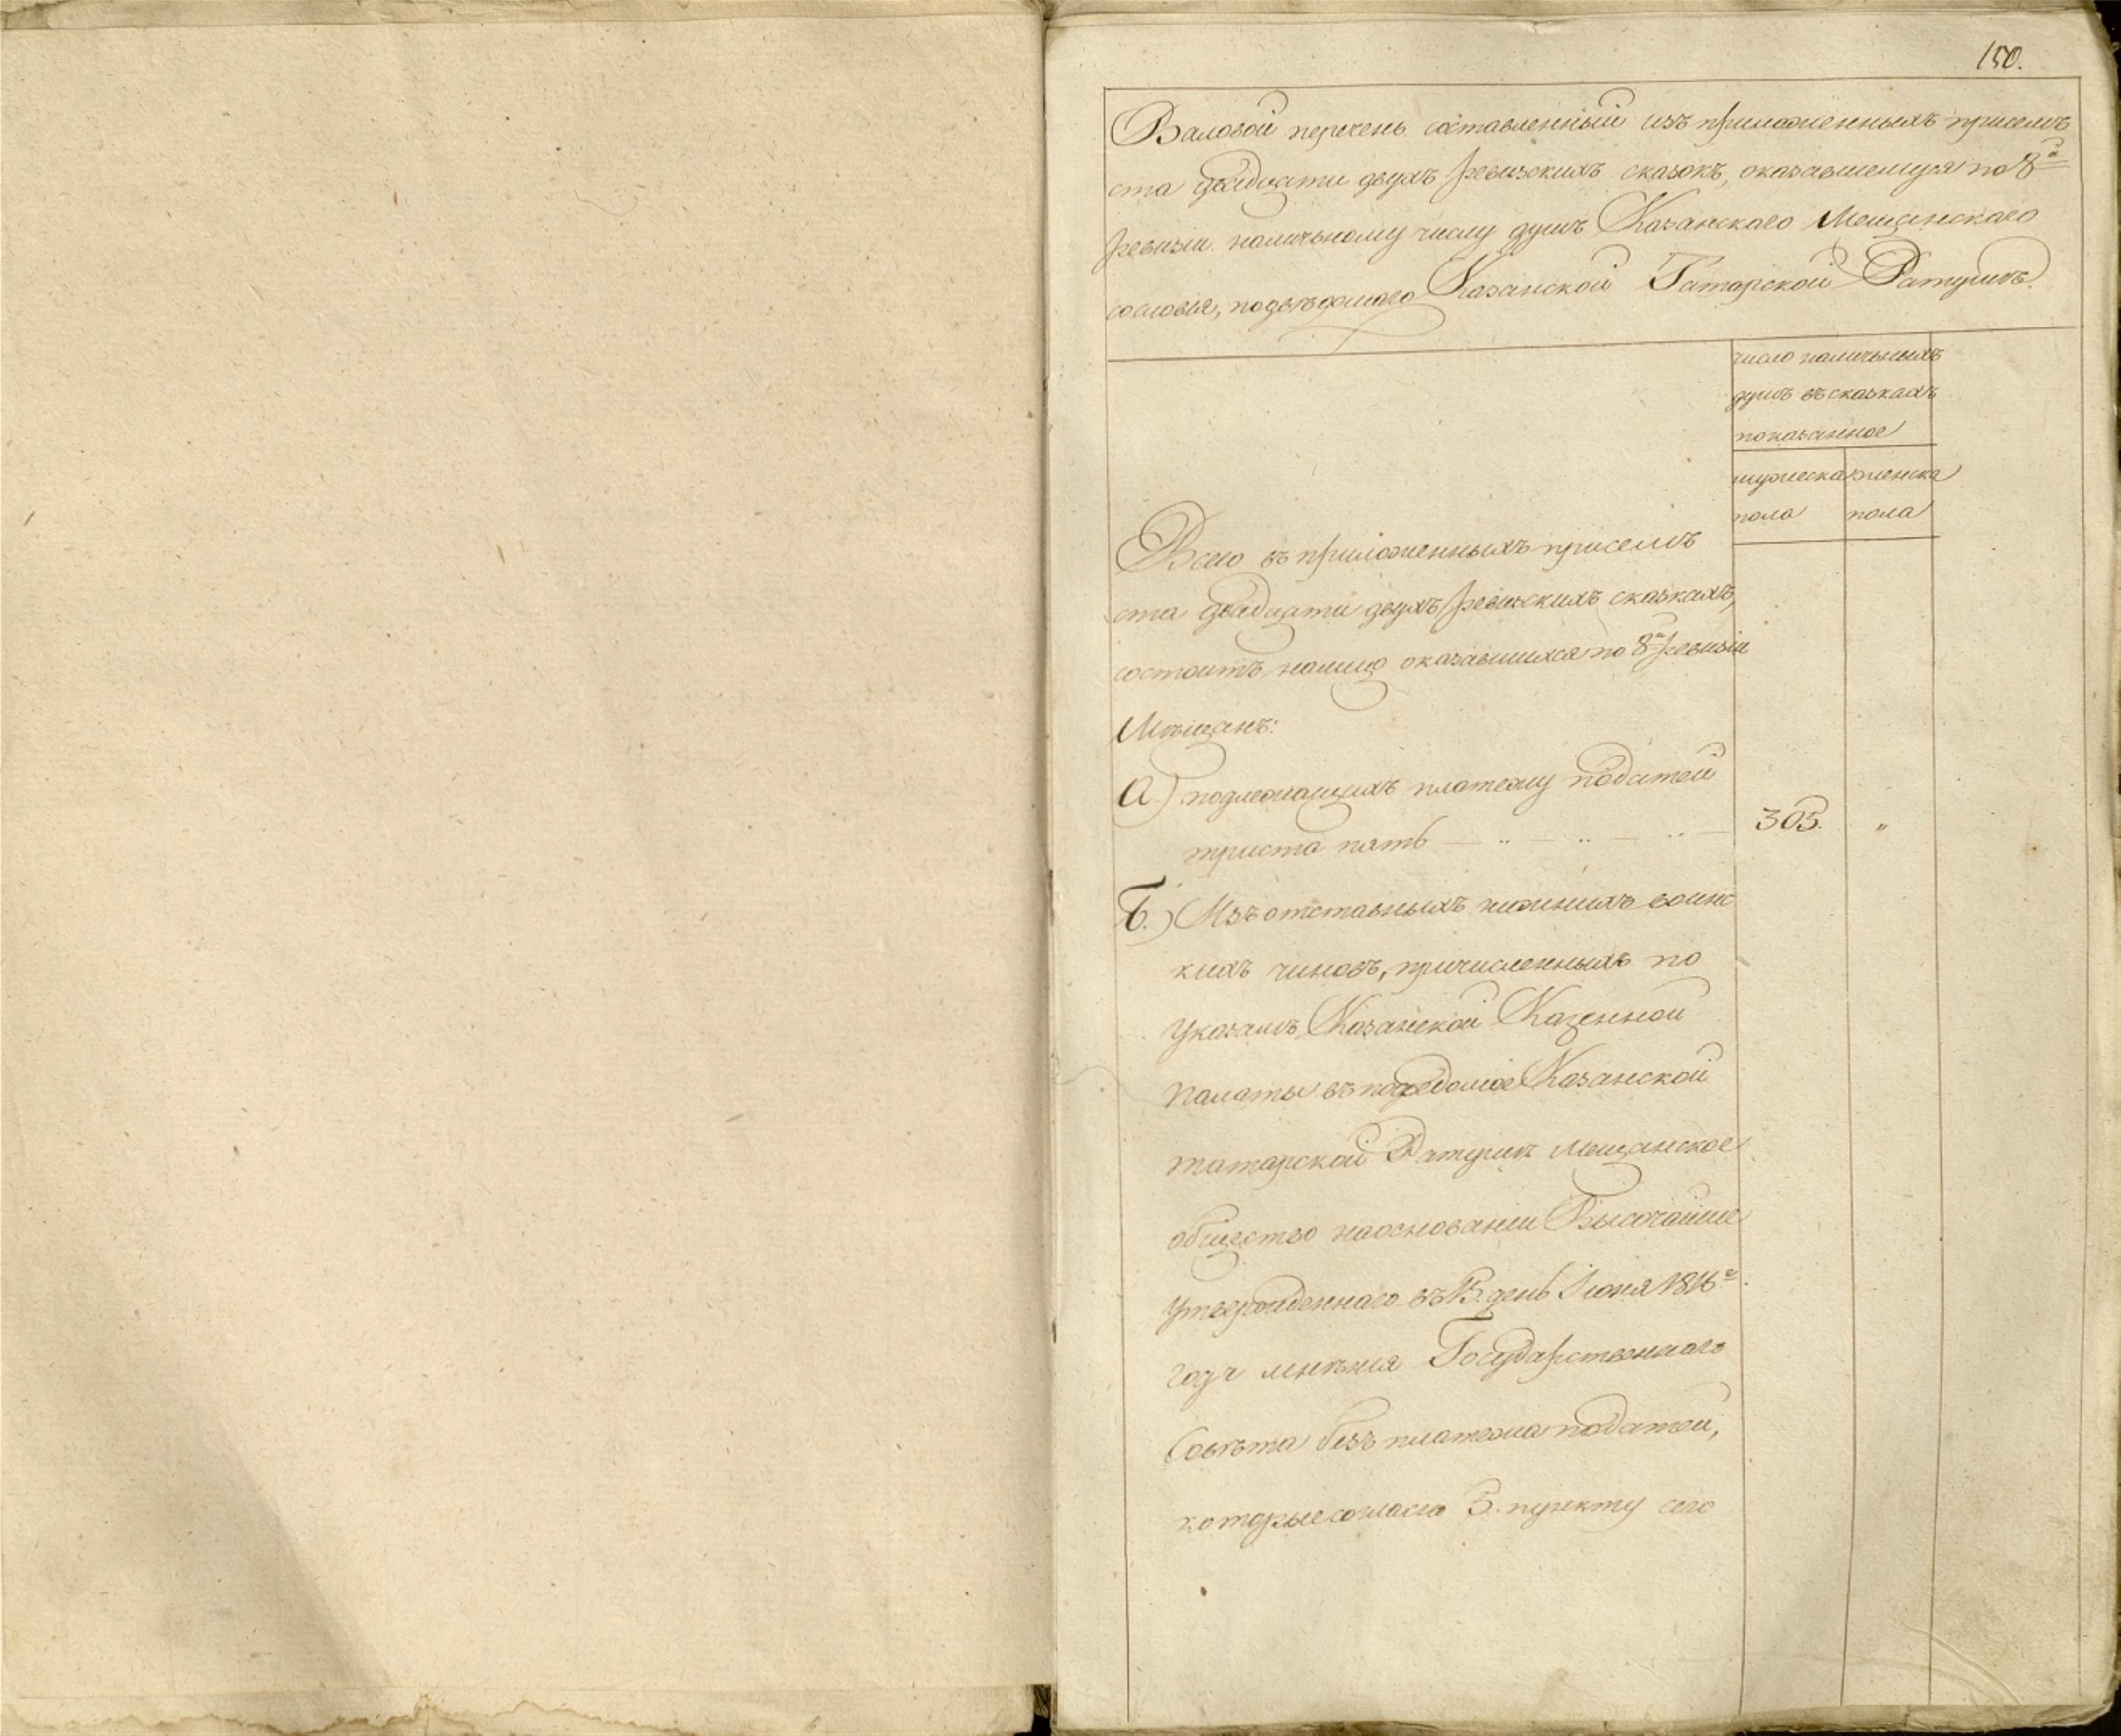 150.
Валовой перечень составленный изъ приложенныхъ присемъ
ста двадцати двухъ ревизскихъ сказокъ, оказавшемуся по 8й
ревизіи наличьному числу душъ Казанскаго Мещанскаго
сословія, подвѣдомаго Казанской Татарской Ратушѣ.
число наличьныхъ
душъ въ сказкахъ
показанное
мужеска женска
пола пола
Всего въ приложенныхъ присемъ
ста двадцати двухъ ревизскихъ сказкахъ,
состоитъ налицо оказавшихся по 8й ревизіи
Мѣщанъ:
А.) подлежащихъ платежу податей
триста пять — „ — „ — „ — 305. „
Б.) Изъ отставныхъ нижнихъ воинс
кихъ чиновъ, причисленныхъ по
указамъ Казанской Казенной
Палаты въ подведоміе Казанской
татарской Ратуши Мещанское
общество наосновании Высочайше
утвержденнаго въ 15. день Іюня 1816го
года мнѣнія Государственнаго
Совѣта безъ платежа податей,
которые согласно 3. пункту сего